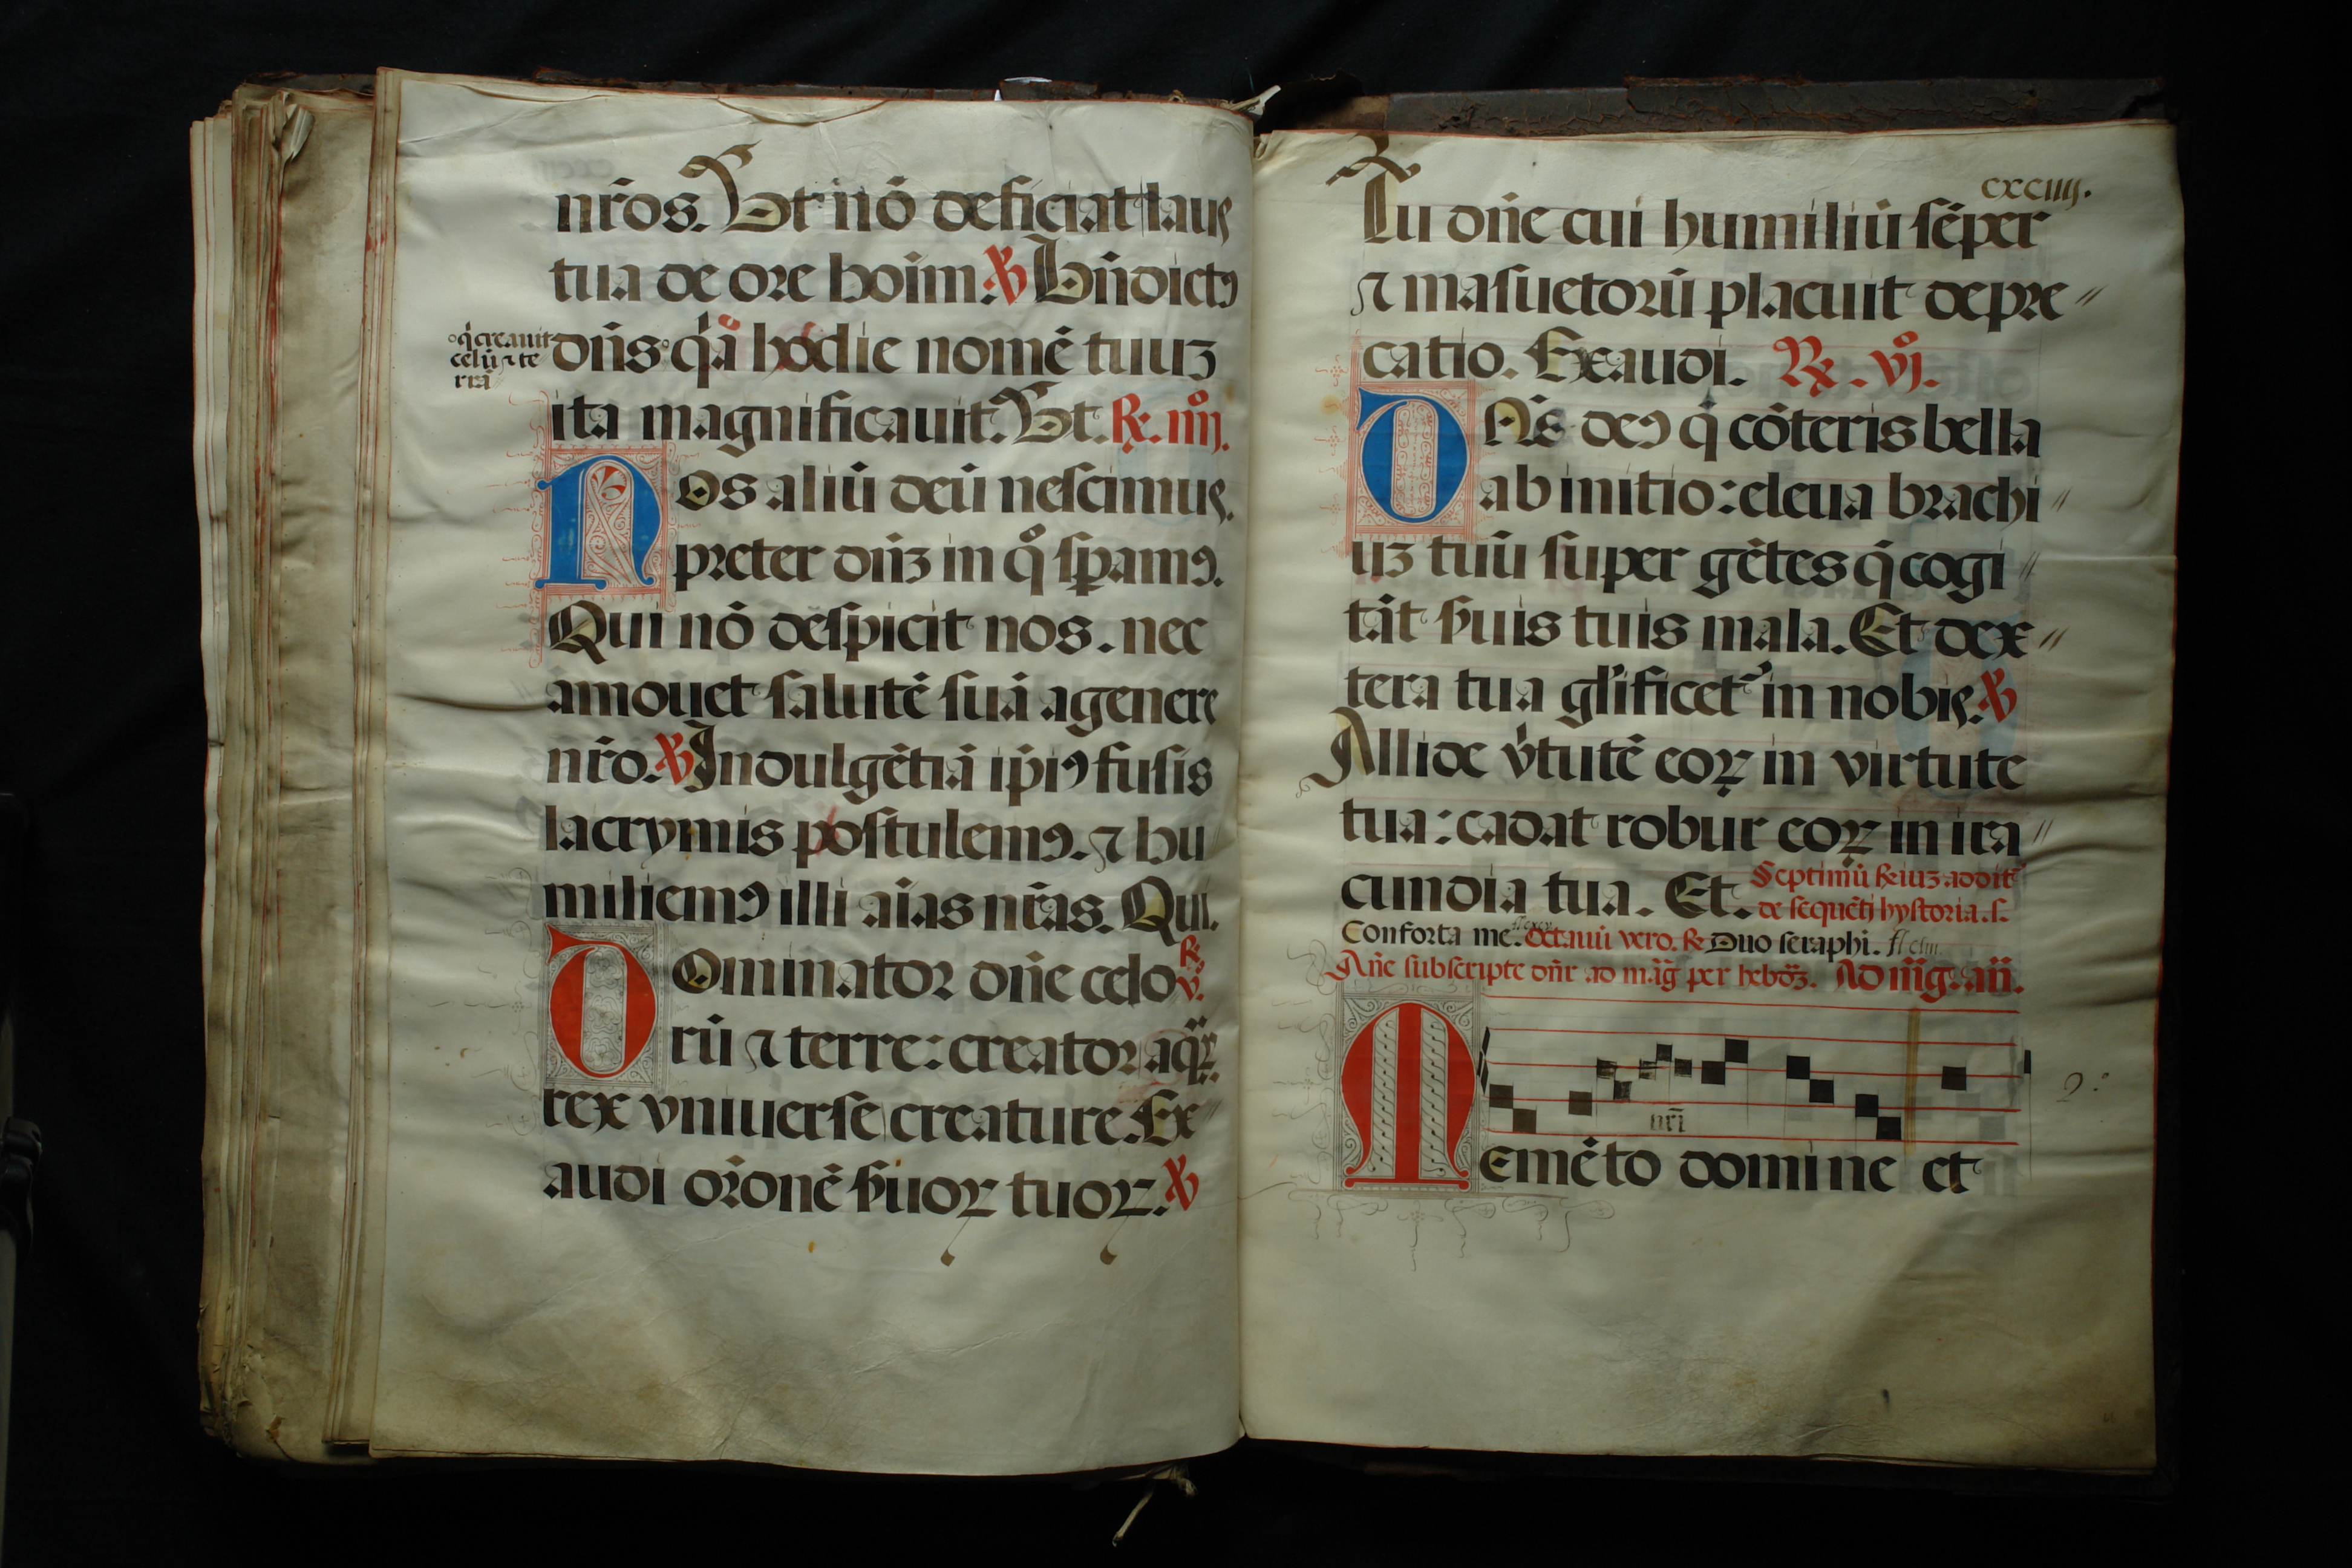 nr̄os. Vt nō deficiat laus
tua de ore hoīm. ℣ Bn̄dictꝯ
dn̄s qͥa hodie nomē tuuꝫ
qͥ creauit
celū ⁊ te
rrā
ita magnificauit. Vt. ℞. iiijº.
Nos aliū deū nescimus.
preter dn̄ꝫ in qº sꝑamꝯ.
Qui nō despicit nos. nec
amouet salutē suā a genere
nr̄o. ℣ Indulgētiā ip̄iꝯ fusis
lacrymis postulemꝯ. ⁊ hu
miliemꝯ illi aīas nr̄as. Qui.
Dominator dn̄e celo ℞. v.
rū ⁊ terre: creator aqꝝ.
rex vniuerse creature. Ex
audi or̄onē ẜuoꝝ tuoꝝ. ℣
cxciiij.
Tu dn̄e cui humiliū sēper
⁊ māsuetorū placuit depre
catio. Exaudi. ℞. vjº.
Dn̄s deꝯ qͥ cōteris bella
ab initio: eleua brachi
uꝫ tuū super gētes qͥ cogi
tāt ẜuis tuis mala. Et dex
tera tua gl̄ificet᷑ in nobis. ℣
Allide v̓tutē eoꝝ in virtute
tua: cadat robur eoꝝ in ira
cundia tua. Et. Septimū ℞iuꝫ addit᷑
de sequēti hystoria. s.
Conforta me. Octauū vero. ℞ Duo seraphi.
An̄e subscripte dn̄r ad māg per hebdꝫ. Ad māg. an̄.
nr̄i
Memēto domine et